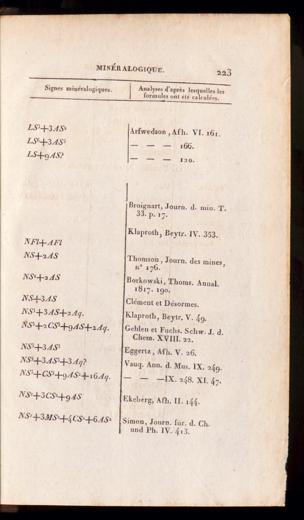 MINÉRALOGIQUE. 223
Signes minéralogiques. Analyses d'après lesquelles les
formules ont été calculées.
LS³+3AS² Arfwedson, Afh. VI. 161.
LS³+3AS³ — — — 166.
LS+9AS? — — — 120.
Brongnart, Journ. d. min. T.
33. p. 17.
Klaproth, Beytr. IV. 353.
NFl+AFl
NS+2AS Thomson, Journ. des mines,
n° 176.
NS²+2AS Borkowski, Thoms. Annal.
1817. 190.
NS+3AS Clément et Désormes.
NS³+3AS+2Aq. Klaproth, Beytr. V. 49.
NS³+2CS³+9AS+2Aq. Gehlen et Fuchs. Schw. J. d.
Chem. XVIII. 22.
NS³+3AS³ Eggertz, Afh. V. 26.
NS³+3AS²+3Aq? Vauq. Ann. d. Mus. IX. 249.
NS³+CS³+9AS²+16Aq. — — — IX. 248. XI. 47.
NS³+3CS²+9AS Ekeberg, Afh. II. 144.
NS²+3MS²+4CS²+6AS² Simon, Journ. für. d. Ch.
und Ph. IV. 413.